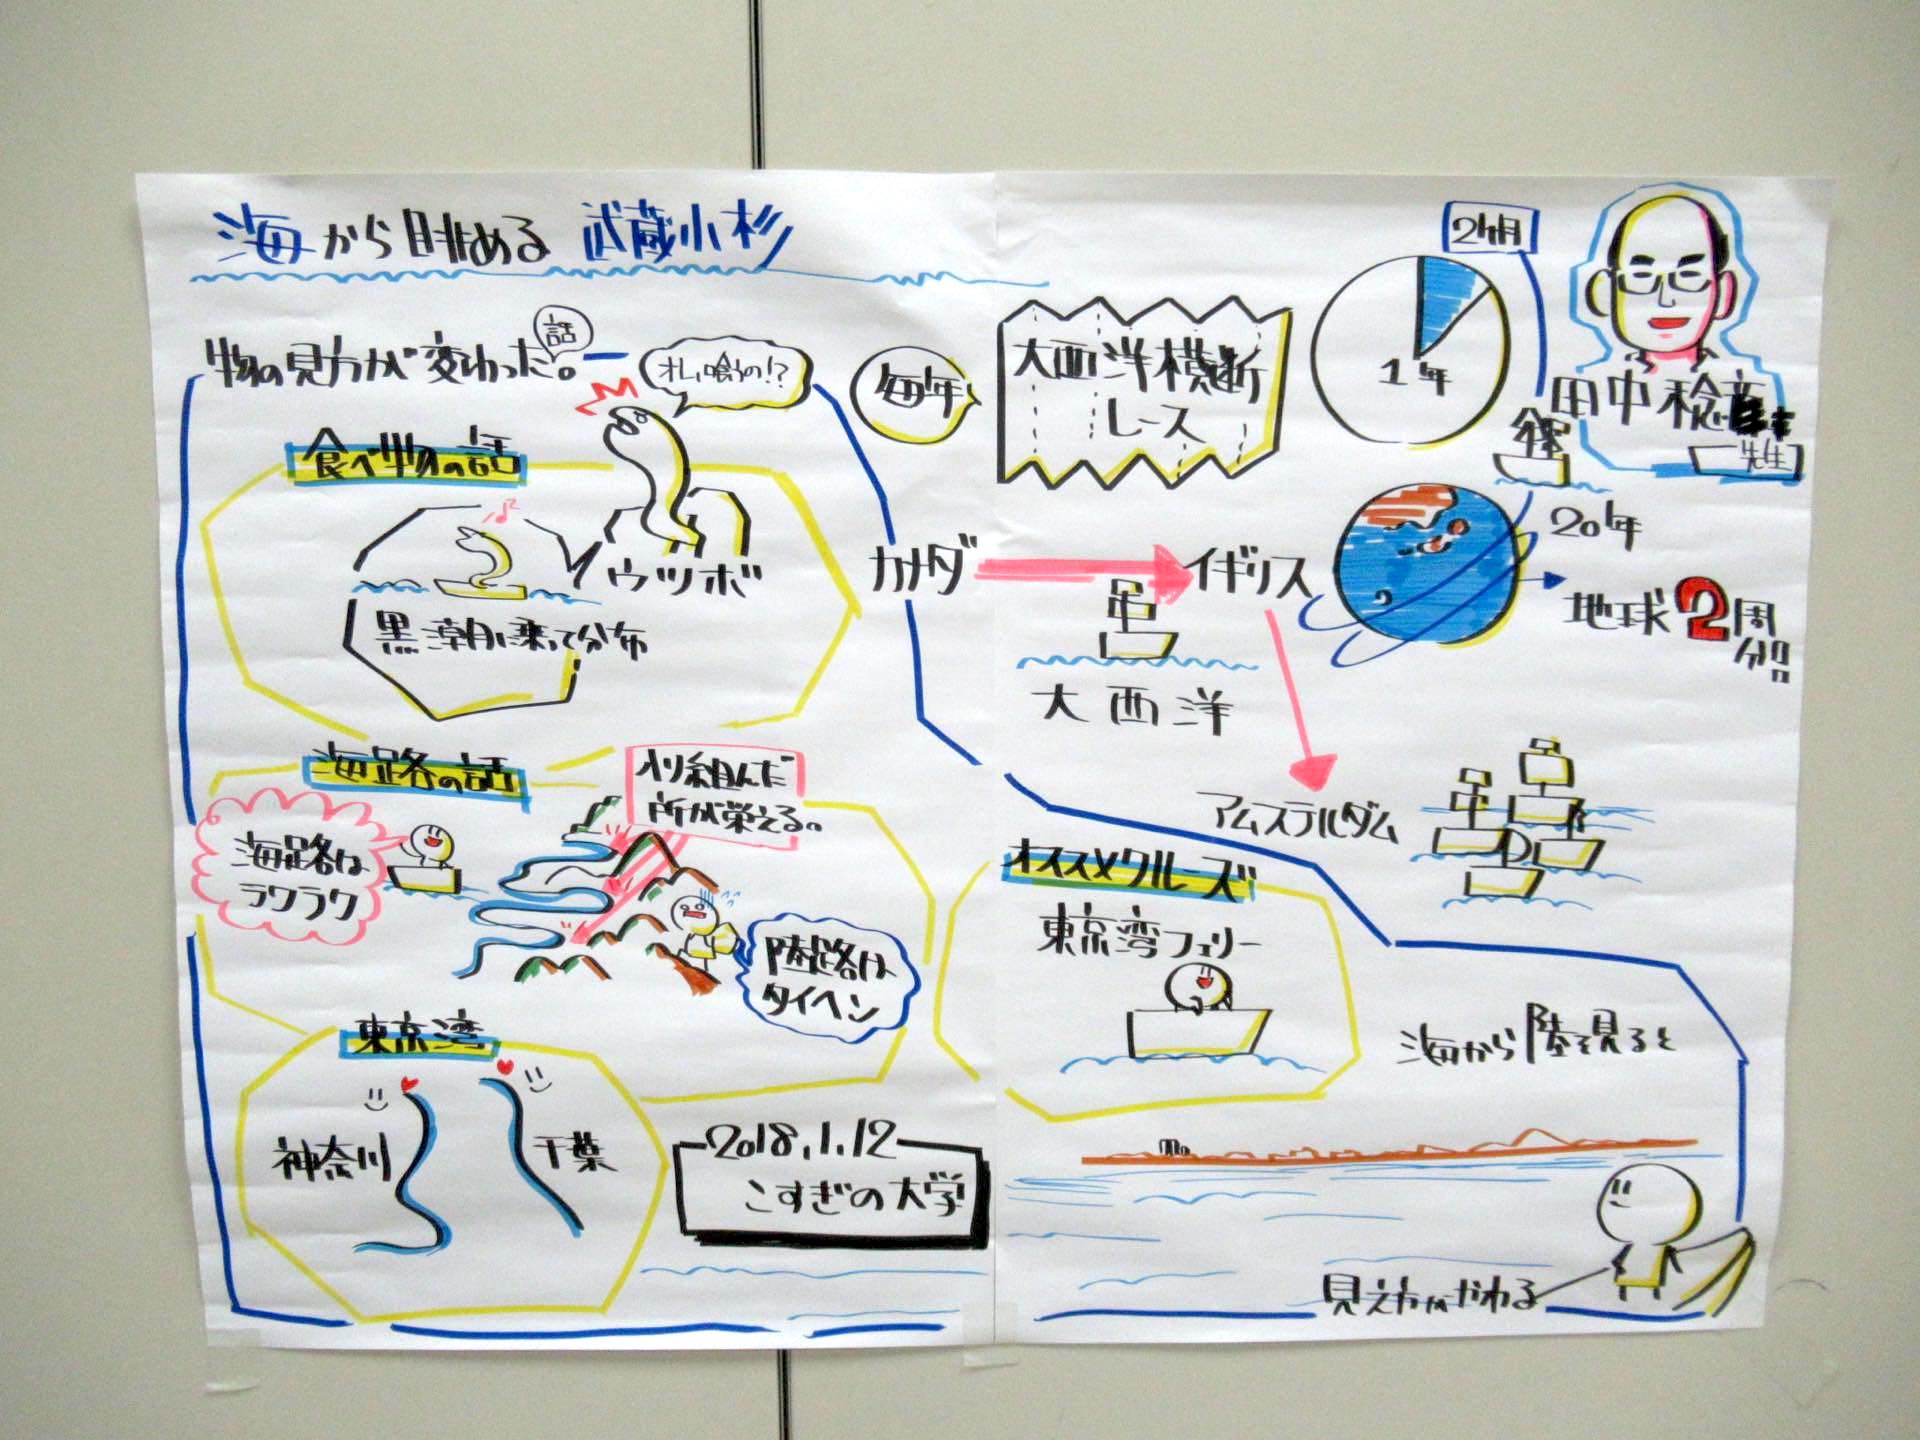 海から眺める 武蔵小杉
物の見方が変わった。
話
オレ、喰うの!?
食べ物の話
ウツボ
黒潮に乗って分布
海路の話
海路は
ラクラク
入り組んだ
所が栄える。
陸路は
タイヘン
東京湾
神奈川
千葉
2018.1.12
こすぎの大学
毎年
大西洋横断
レース
カナダ
イギリス
大西洋
アムステルダム
2ヶ月
1年
田中
先生
20年
地球2周
分!!
オススメクルーズ
東京湾フェリー
海から陸を見ると
見え方がかわる